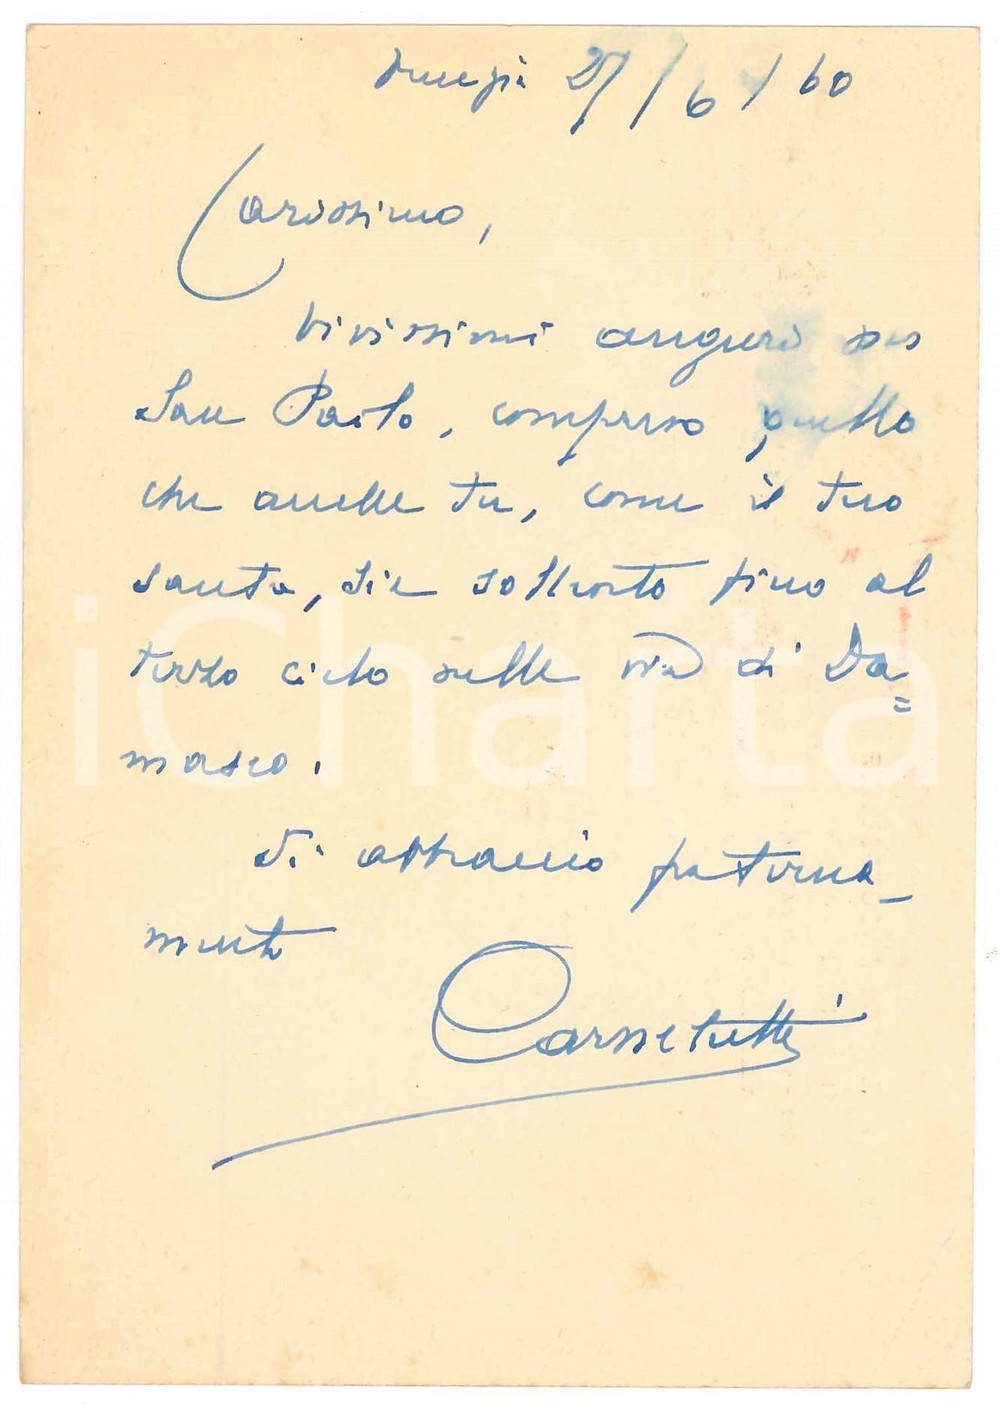 Venezia 27/6/60
Carissimo,
vivissimi auguri per
San Paolo, compreso quello
che anche tu, come il tuo
santo, sia sollevato fino al
terzo cielo sulla via di Da=
masco.
Ti abbraccio paterna_
mente
Carnelutti
iCharta